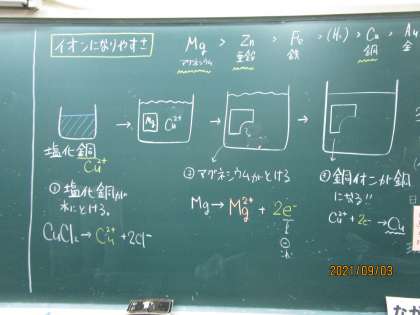 イオンになりやすさ
Mg > Zn > Fe > (H₂) > Cu > Au
マグネシウム 亜鉛 鉄 銅 金
塩化銅
Cu²⁺
Mg Cu²⁺
① 塩化銅が
水にとける。
CuCl₂ → Cu²⁺ + 2Cl⁻
② マグネシウムがとける
Mg → Mg²⁺ + 2e⁻
③ 銅イオンが銅
になる!!
Cu²⁺ + 2e⁻ → Cu
2021/09/03